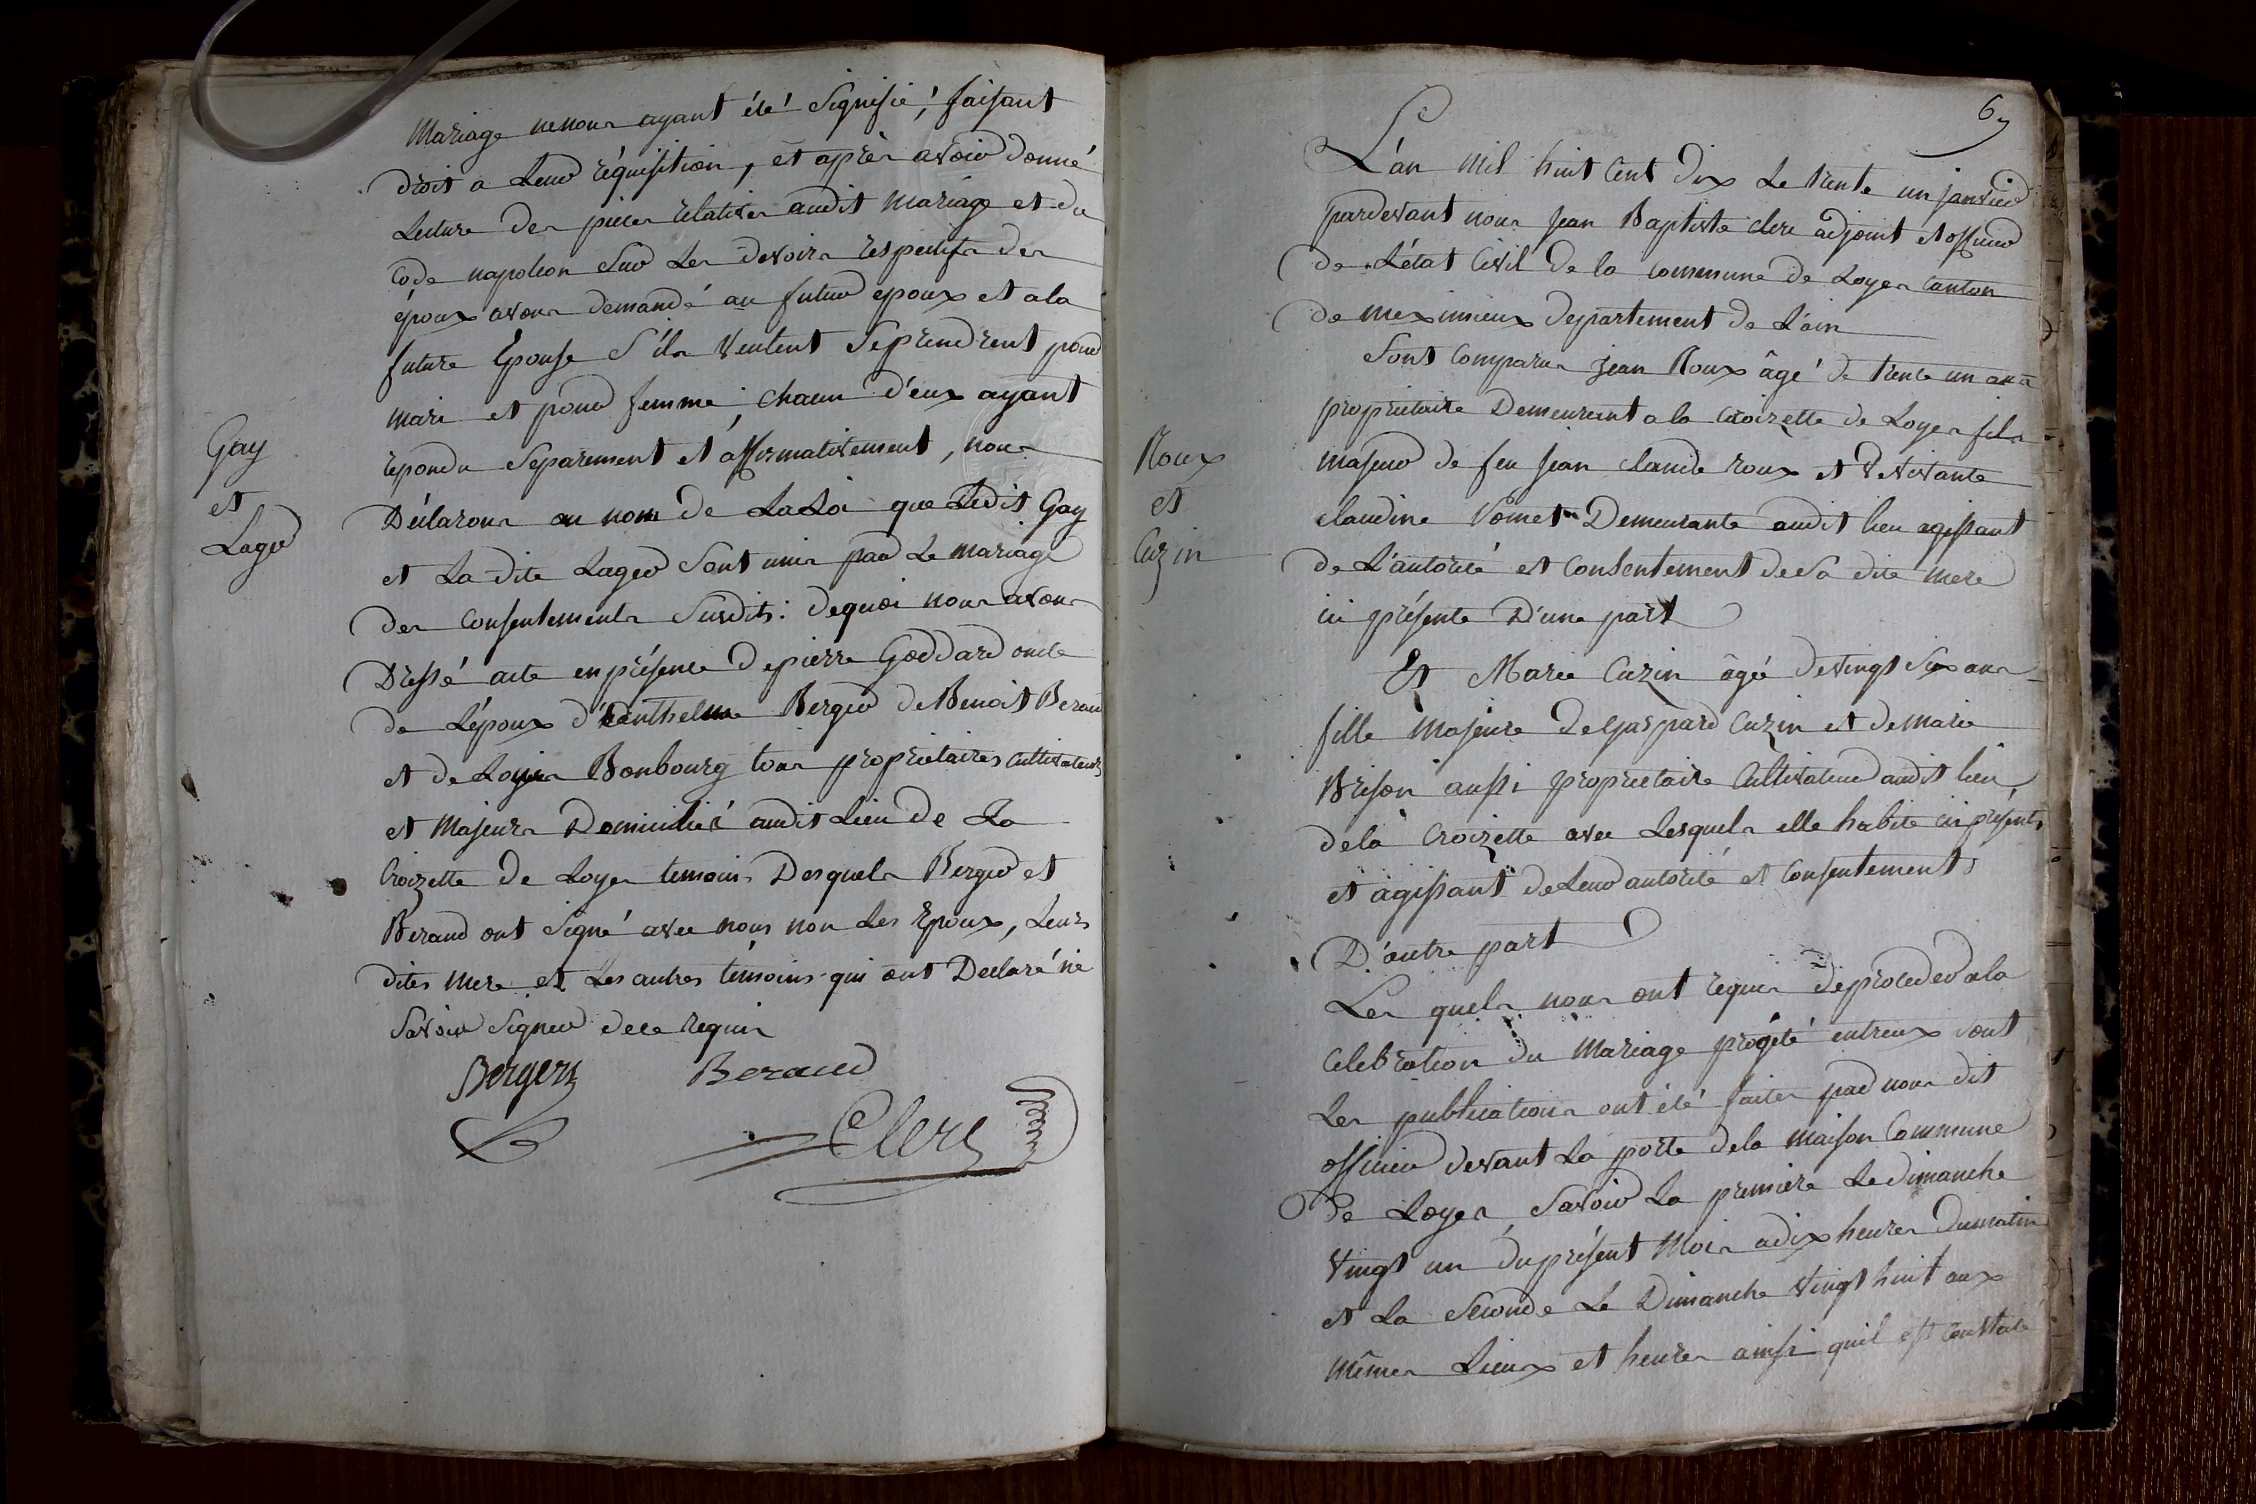 Mariage ne nous ayant été signifié, faisant
droit a Leur réquisition, et après avoir donné
Lecture des pieces relatives audit mariage et du
Code napoleon sur Les devoirs respectifs des
époux avons demandé au futur epoux et a la
future Epouse S'ils veulent se prendrent pour
mari et pour femme, chacun d'eux ayant
repondu separement et affirmativement, nous
Déclarons au nom de La Loi que Ledit Gay
et La dite Lager sont unis par Le mariage
des consentements susdits: de quoi nous avons
Gay
et
Lager
Dressé acte en présence de pierre Goddard oncle
de L'époux d'anthelme Berger de Benoit Beraud
et de Bonbourg tous proprietaires cultivateurs
et majeurs Domiciliés audit Lieu de La
Croizette de Loyes temoins Desquels Berger et
Beraud ont signé avec nous non Les Epoux, Leurs
dites mere et Les autres témoins qui ont Declaré ne
Savoir signer de ce requis
Bergers Beraud
Clerc
67
L'an mil huit Cent dix Le trente un janvier
pardevant nous Jean Baptiste clerc adjoint et officier
de L'état Civil de la commune de Loyes canton
de meximieux departement de L'ain
Sont Comparus jean Roux âgé de trente un ans
proprietaire Demeurant a la Croizette de Loyes fils
majeur de feu Jean claude roux et de vivante
claudine Demeurante audit lieu agissant
de L'autorité et consentement de sa dite mere
ici présente D'une part
Roux
et
Cuzin
Et Marie Cuzin âgé de vingt six ans
fille majeure de gaspard Cuzin et de marie
Brison aussi proprietaire Cultivateur audit lieu
de la Croizette avec Lesquels elle habite ici présents
et agissant de Leur autorité et Consentements
D'autre part
Les quels nous ont requis de proceder a la
Celebration du Mariage progété entreux dont
Les publications ont été faites par nous dit
officier devant La porte de la maison Commune
de Loyes, Savoir La premiere Le dimanche
vingt un du présent Mois a dix heures du matin
et La Seconde Le Dimanche vingt huit aux
mêmes Lieux et heures ainsi quil est Constaté